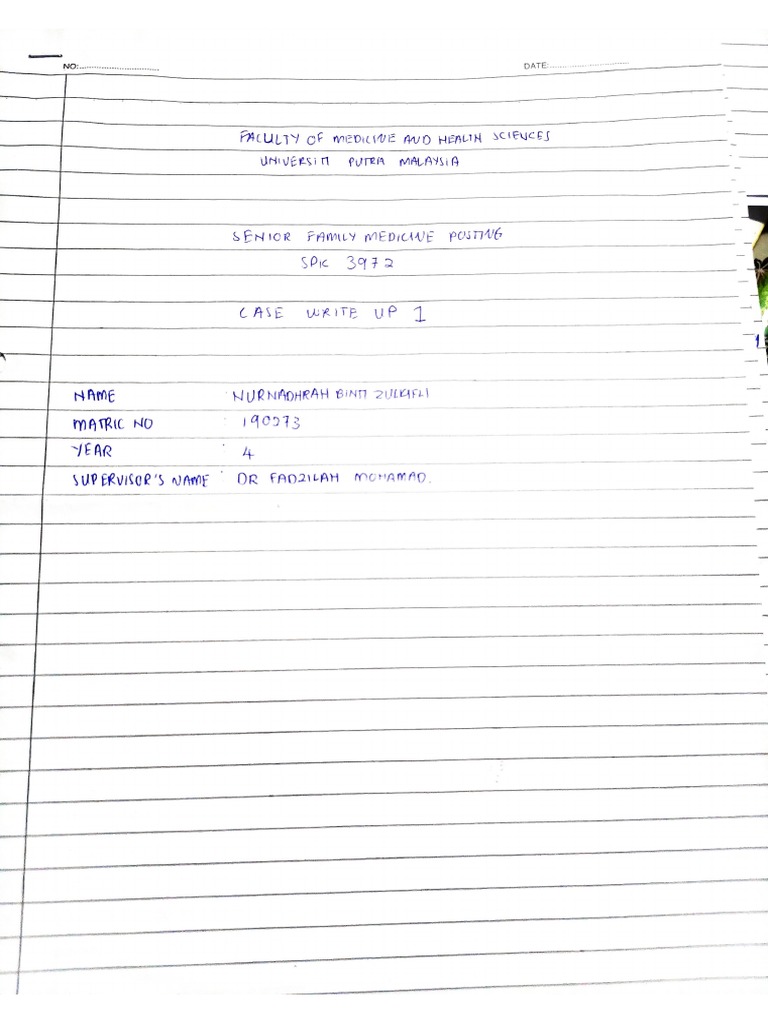 NO:
DATE:
FACULTY OF MEDICINE AND HEALTH SCIENCES
UNIVERSITI PUTRA MALAYSIA
SENIOR FAMILY MEDICINE POSTING
SPK 3972
CASE WRITE UP 1
NAME : NURNADHRAH BINTI ZULKIFLI
MATRIC NO : 190273
YEAR : 4
SUPERVISOR'S NAME : DR FADZILAH MOHAMAD.